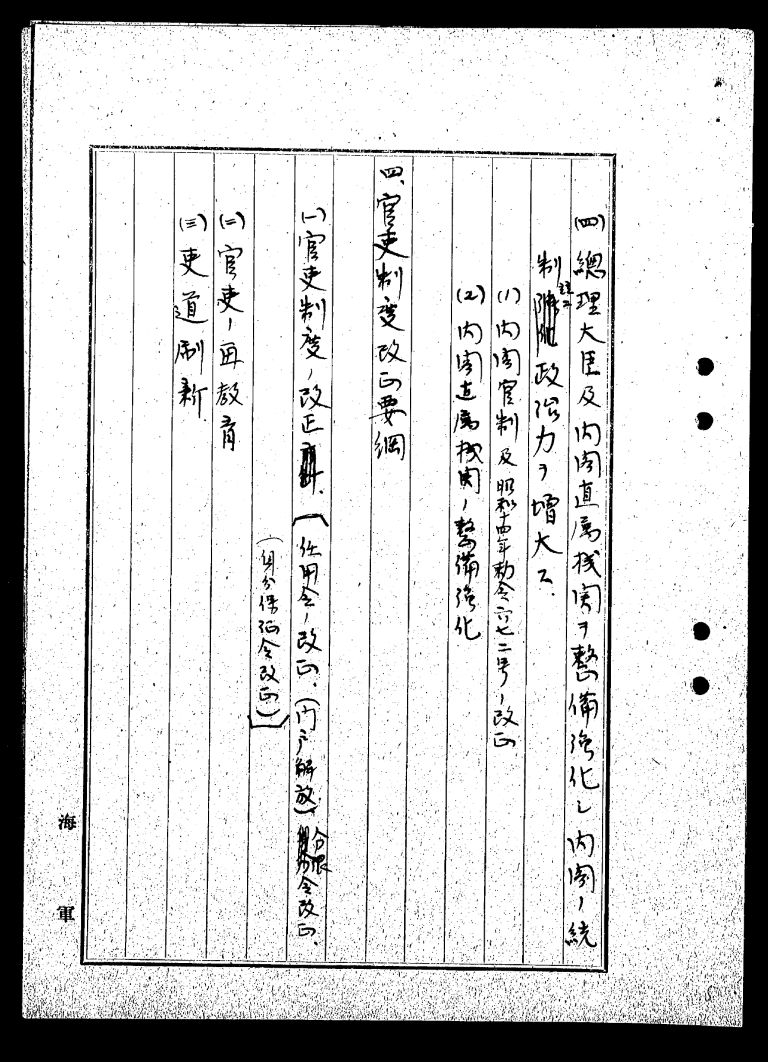 (四)總理大臣及内閣直属機関ヲ整備強化シ内閣ノ統
制政治力ヲ増大ス.
(1)内閣官制及昭和十四年勅令六七二号ノ改正
(2)内閣直属機関ノ整備強化
四、官吏制度改正要綱
(一)官吏制度ノ改正.〔任用令ノ改正.(門戸解放)分限令改正.
(身分保証令改正)〕
(二)官吏ノ再教育
(三)吏道刷新
海軍